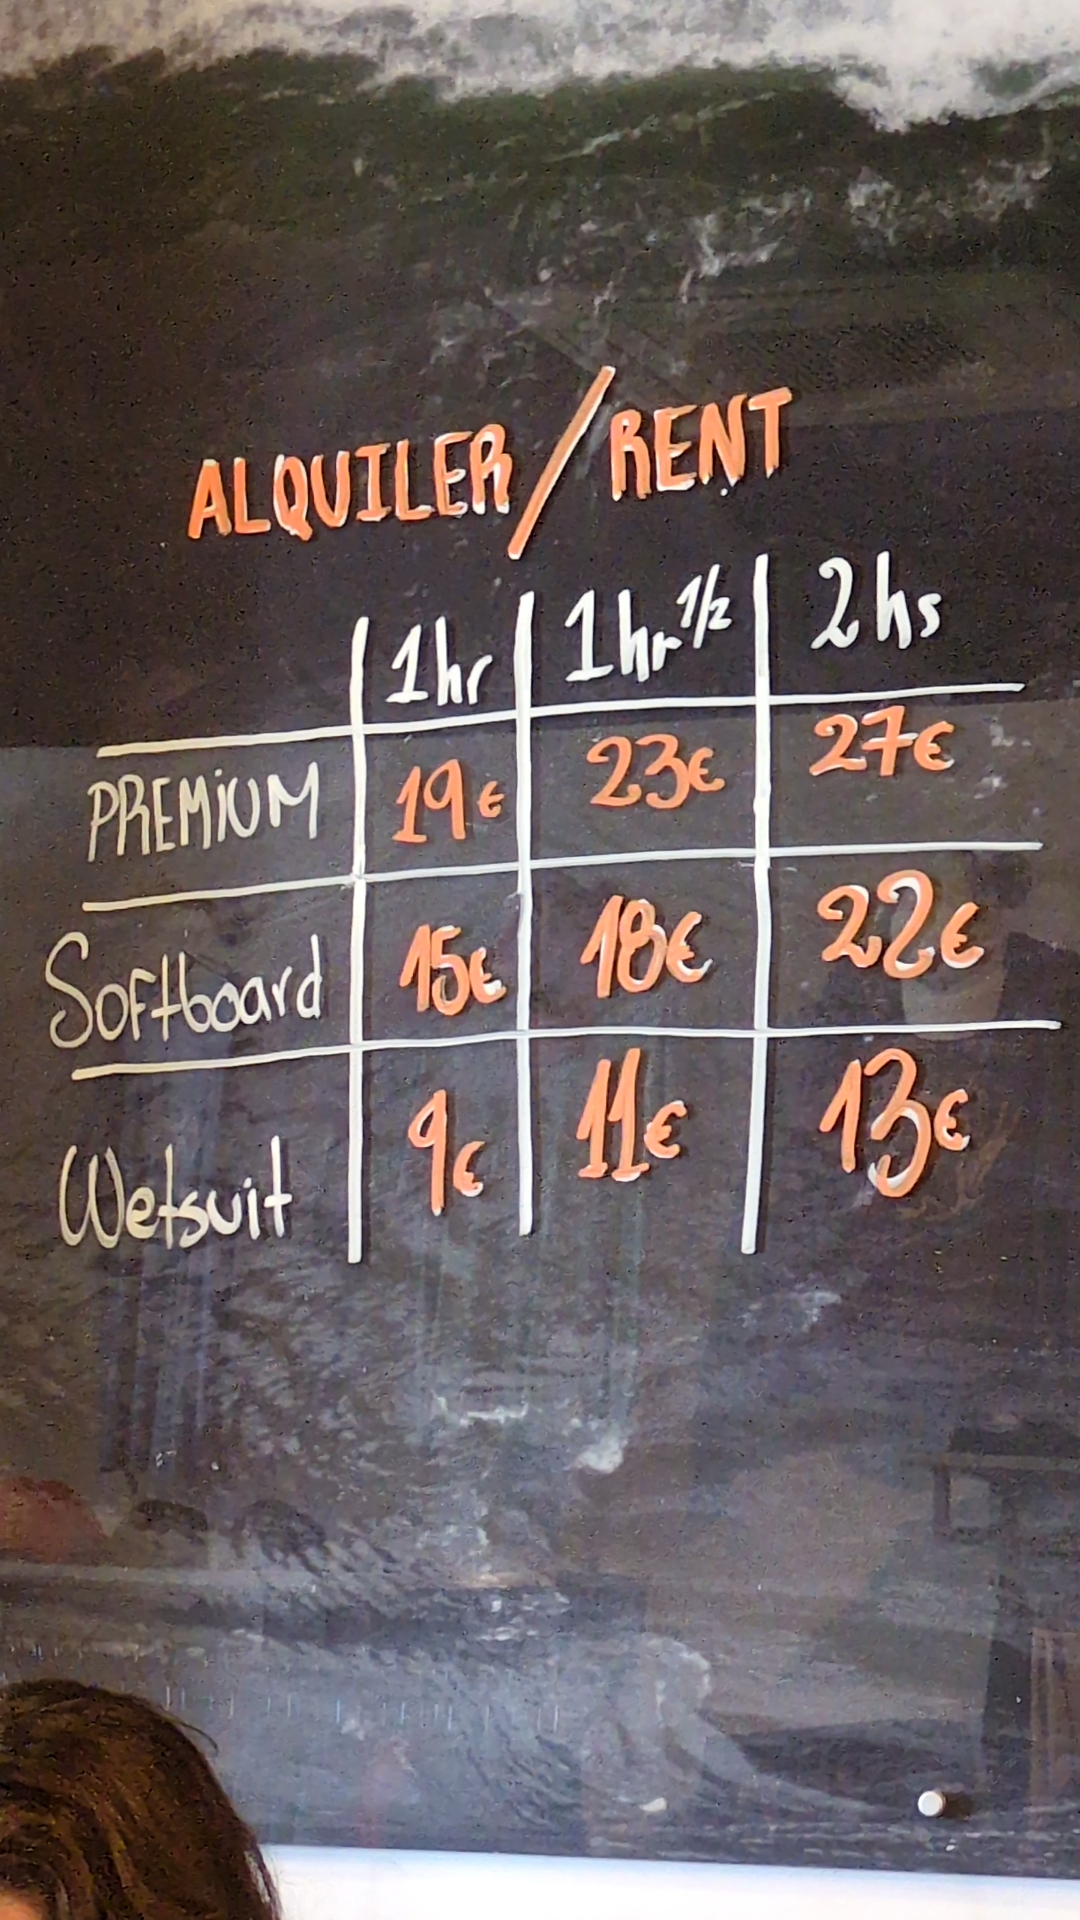 ALQUILER / RENT
1hr 1hr 1/2 2hs
PREMIUM 19€ 23€ 27€
Softboard 15€ 18€ 22€
Wetsuit 9€ 11€ 13€